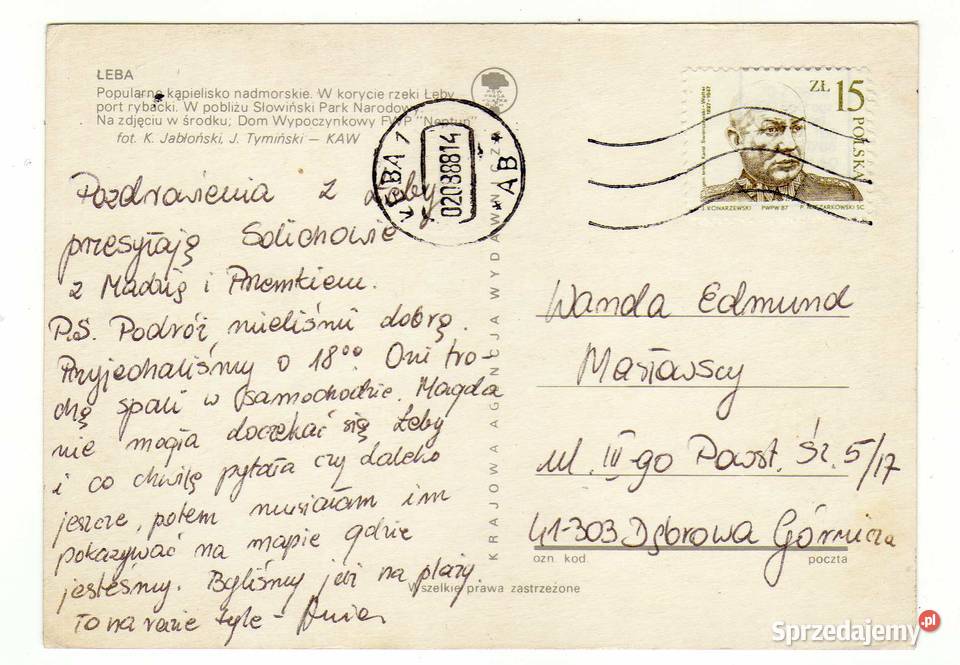 ŁEBA
Popularne kąpielisko nadmorskie. W korycie rzeki Łeby
port rybacki. W pobliżu Słowiński Park Narodowy
Na zdjęciu w środku; Dom Wypoczynkowy FWP "Neptun"
fot. K. Jabłoński, J. Tymiński — KAW
Pozdrowienia z Łeby
przesyłają Solichowie
z Madzią i Przemkiem.
P.S. Podróż mieliśmy dobrą.
Przyjechaliśmy o 18⁰⁰. Oni tro-
chę spali w samochodzie. Magda
nie mogła doczekać się Łeby
i co chwilę pytała czy daleko
jeszcze, potem musiałam im
pokazywać na mapie gdzie
jesteśmy. Byliśmy już na plaży.
To na razie tyle -
KRAJOWA AGENCJA WYDAWNICZA
ŁEBA 1
02088814
* AB *
ZŁ 15
POLSKA
1897-1947
J. KONARZEWSKI PWPW 87
Wanda Edmund
Masłowscy
ul. III-go Powst. Śl. 5/17
41-303 Dąbrowa Górnicza
ozn. kod. poczta
Wszelkie prawa zastrzeżone
Sprzedajemy.pl